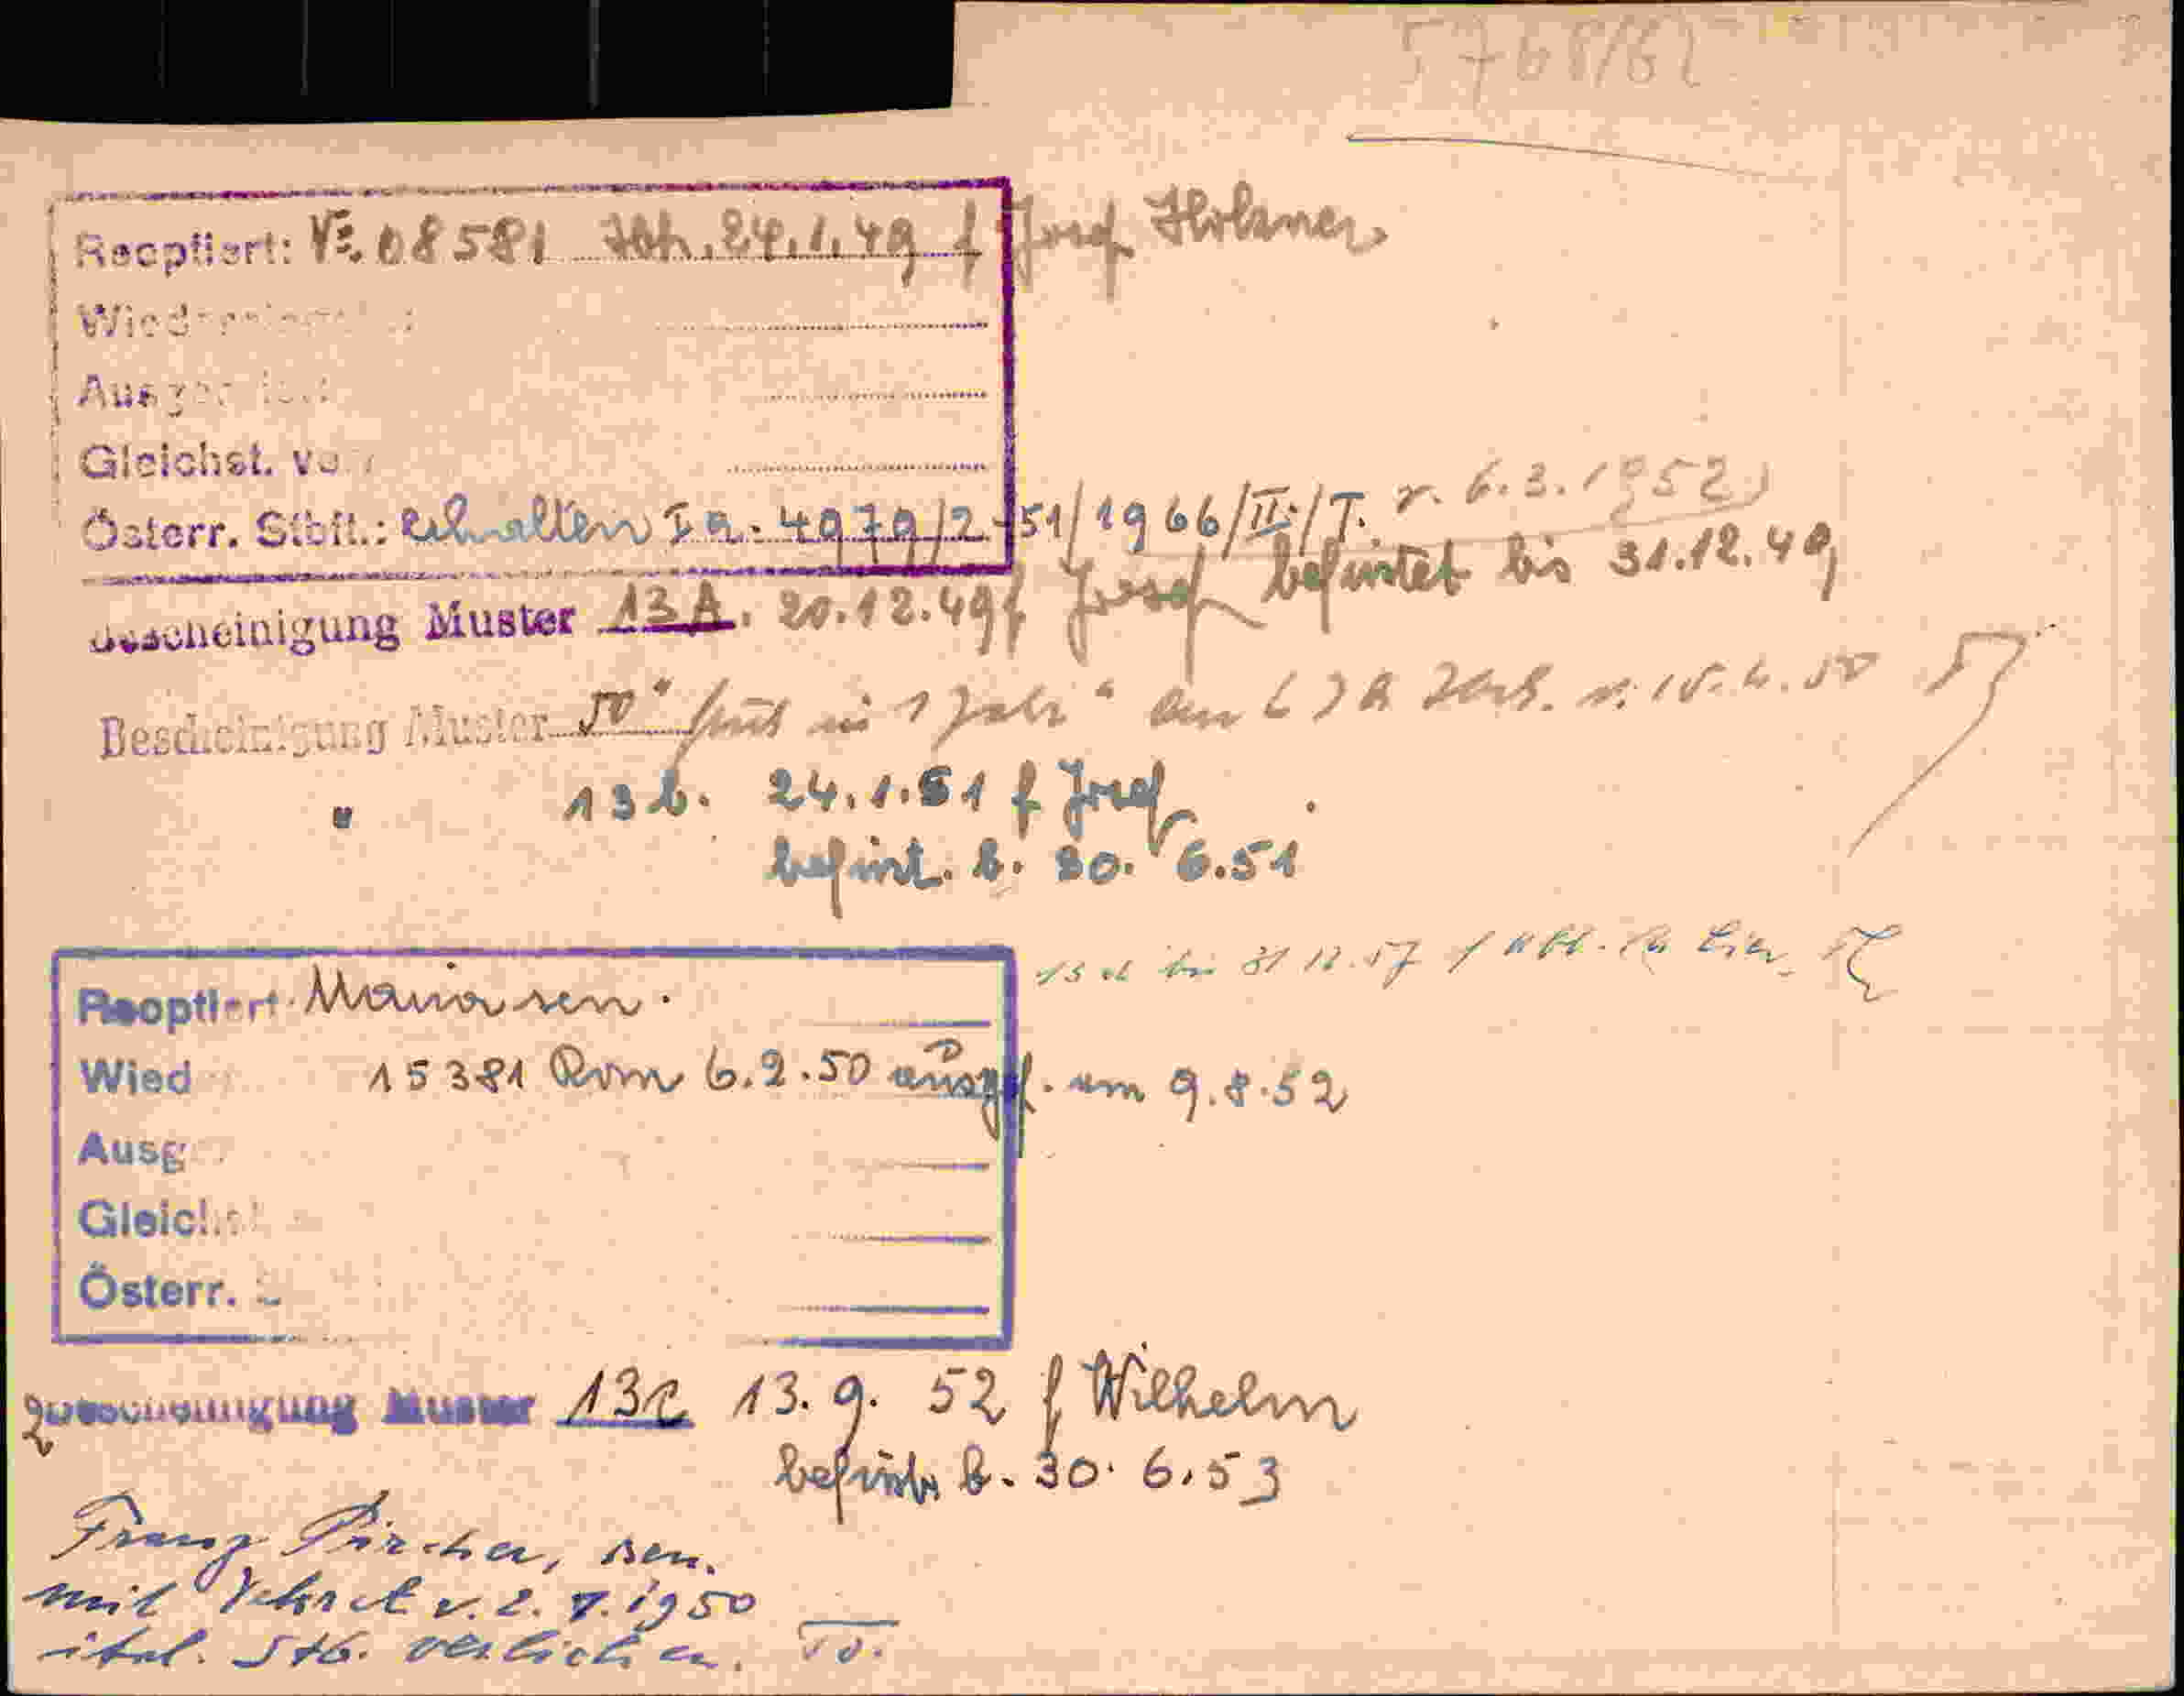 5768/62
Reoptiert: No. 08581 24.1.49 f Josef Holzner
Wied
Ausge
Gleichst. v
Österr. Stbft.: erhalten Ia-4979/2-51/1966/II./T. v. 6.3.1952
Bescheinigung Muster 13A. 20.12.49 f Josef befristet bis 31.12.49
Bescheinigung Muster 50 " 1 Jahr "
" 13b. 24.1.51 f Josef
befrist. b. 30. 6.51
bis 31 12.57
Reoptiert
Wied 15381 Rom 6.2.50 ausgef. am 9.8.52
Ausg
Gleichst
Österr.
Bescheinigung Muster 13c 13.9.52 f Wilhelm
befrist. b. 30.6.53
Franz Pircher, sen.
mit Dekret v. 2.7.1950
ital. Stb. verliehen.